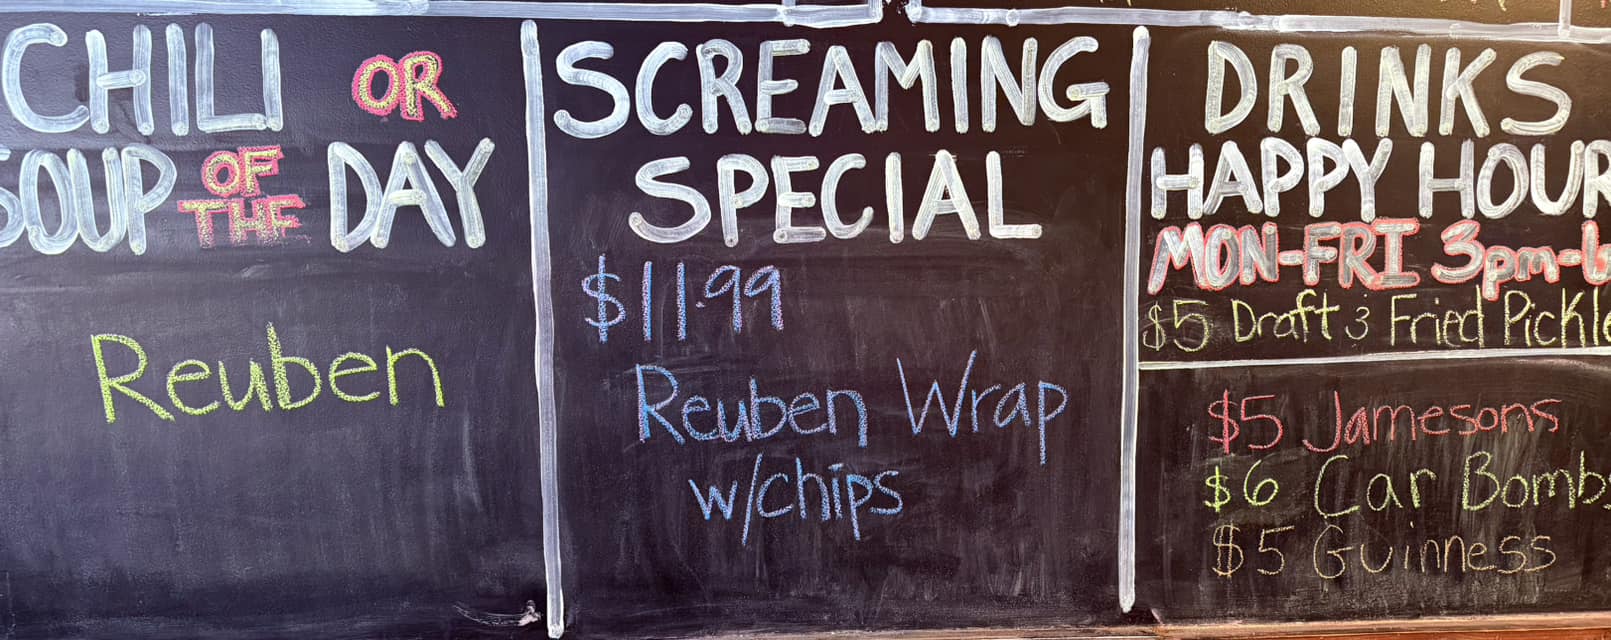 CHILI OR
SOUP OF THE DAY
Reuben
SCREAMING
SPECIAL
$11.99
Reuben Wrap
w/chips
DRINKS
HAPPY HOUR
MON-FRI 3pm-
$5 Draft & Fried Pickle
$5 Jamesons
$6 Car Bombs
$5 Guinness